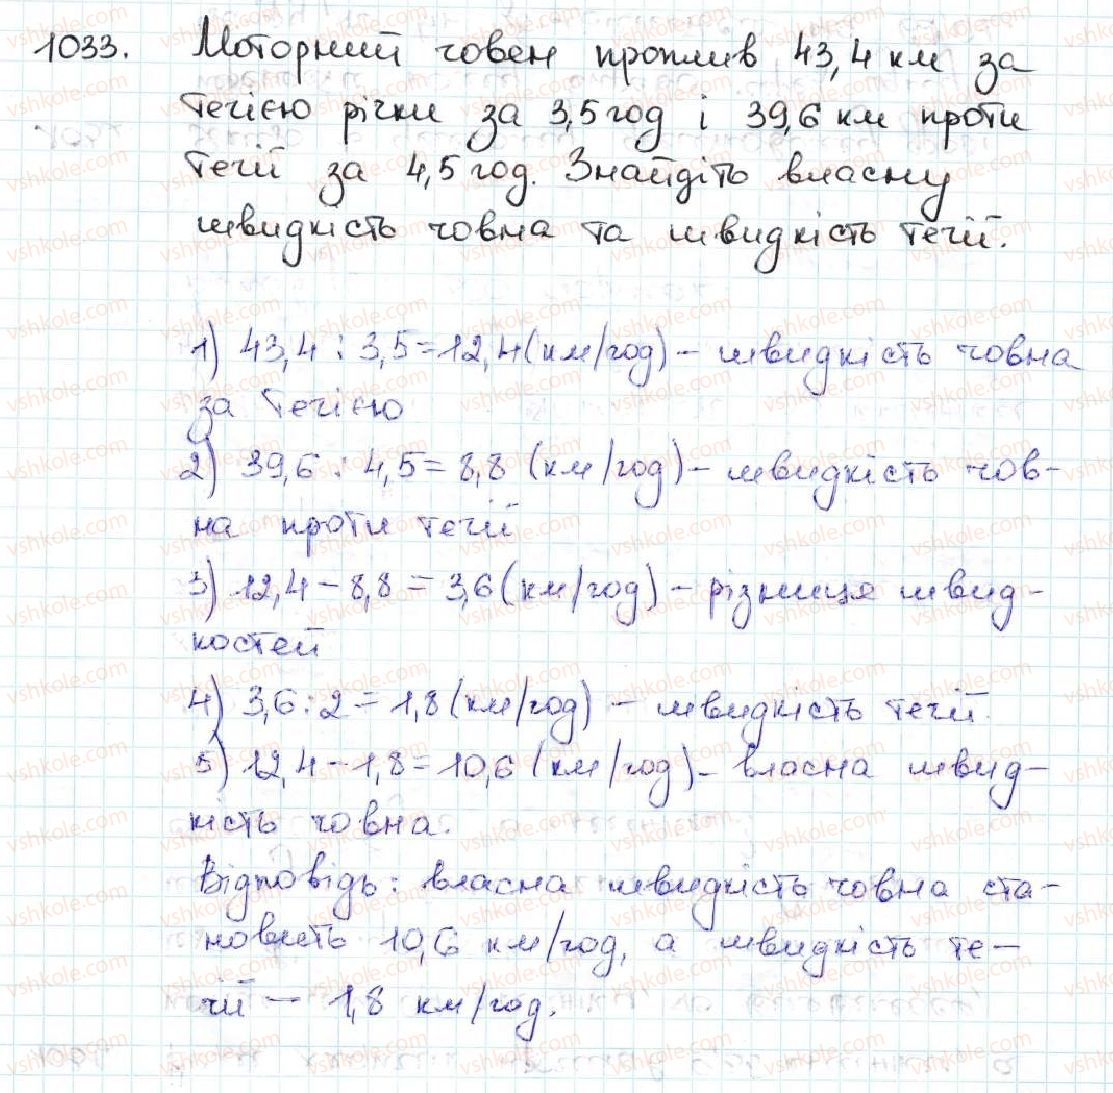 1033. Моторний човен проплив 43,4 км за
течією річки за 3,5 год і 39,6 км проти
течії за 4,5 год. Знайдіть власну
швидкість човна та швидкість течії.
1) 43,4 : 3,5 = 12,4 (км/год) – швидкість човна
за течією
2) 39,6 : 4,5 = 8,8 (км/год) – швидкість чов-
на проти течії
3) 12,4 – 8,8 = 3,6 (км/год) – різниця швид-
костей
4) 3,6 : 2 = 1,8 (км/год) – швидкість течії.
5) 12,4 – 1,8 = 10,6 (км/год) – власна швид-
кість човна.
Відповідь: власна швидкість човна ста-
новить 10,6 км/год, а швидкість те-
чії – 1,8 км/год.